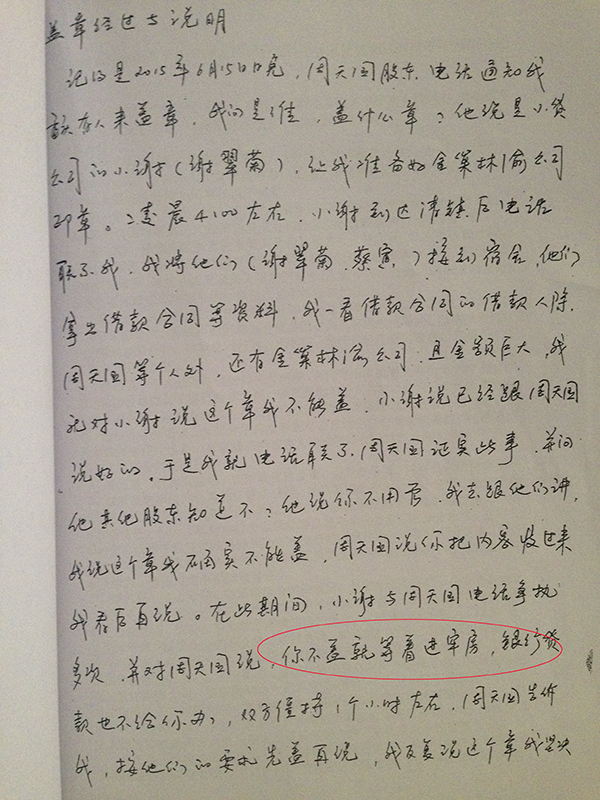 盖章经过与说明
记得是2015年6月15日晚，周天国股东电话通知我
有人来盖章，我问是谁，盖什么章？他说是小贷
公司的小谢（谢翠菊），让我准备好金巢林渝公司
印章。凌晨4:00左右，小谢到达清镇后电话
联系我，我将他们（谢翠菊、蔡寅）接到宿舍，他们
拿出借款合同等资料，我一看借款合同的借款人除
周天国等个人外，还有金巢林渝公司，且金额巨大，我
就对小谢说这个章我不能盖，小谢说已经跟周天国
说好的，于是我就电话联系周天国证实此事，并问
他其他股东知道不？他说你不用管，我去跟他们讲，
我说这个章我确实不能盖，周天国说你把内容发过来
我看后再说。在此期间，小谢与周天国电话争执
多次，并对周天国说，你不盖就等着进牢房，银行贷
款也不给你办，双方僵持1个小时左右，周天国告诉
我，按他们的要求先盖再说，我反复说这个章我坚决